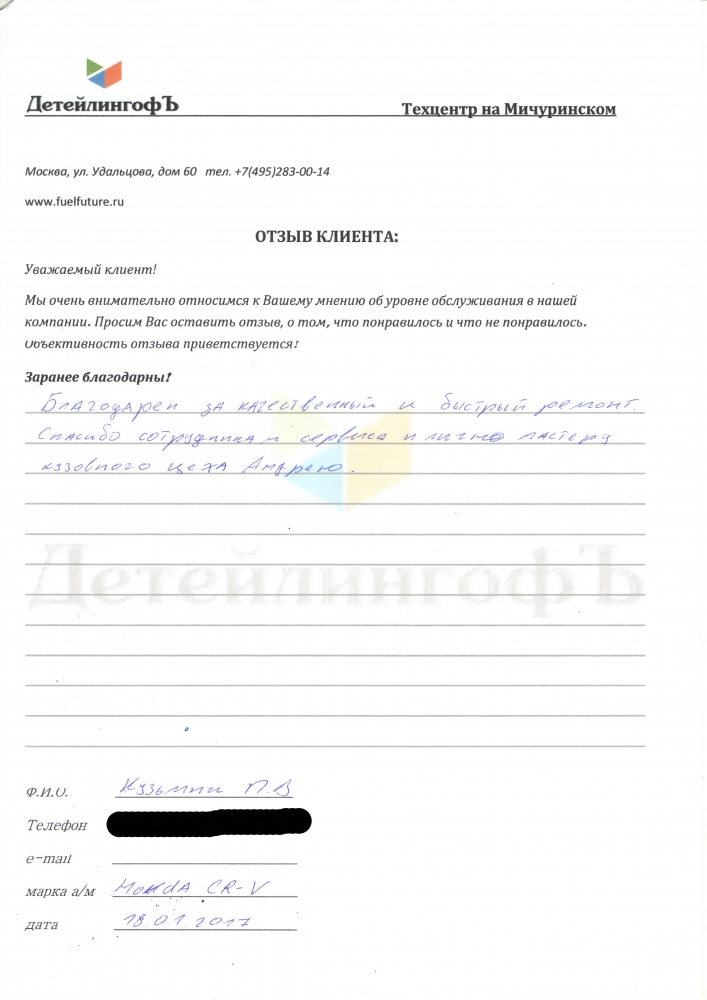 ДетейлингофЪ
Техцентр на Мичуринском
Москва, ул. Удальцова, дом 60 тел. +7(495)283-00-14
www.fuelfuture.ru
ОТЗЫВ КЛИЕНТА:
Уважаемый клиент!
Мы очень внимательно относимся к Вашему мнению об уровне обслуживания в нашей
компании. Просим Вас оставить отзыв, о том, что понравилось и что не понравилось.
Объективность отзыва приветствуется!
Заранее благодарны!
Благодарен за качественный и быстрый ремонт.
Спасибо сотрудникам сервиса и лично мастеру
кузовного цеха Андрею.
ДетейлингофЪ
Ф.И.О. Кузьмин П.В
Телефон
e-mail
марка а/м Honda CR-V
дата 18.01.2017